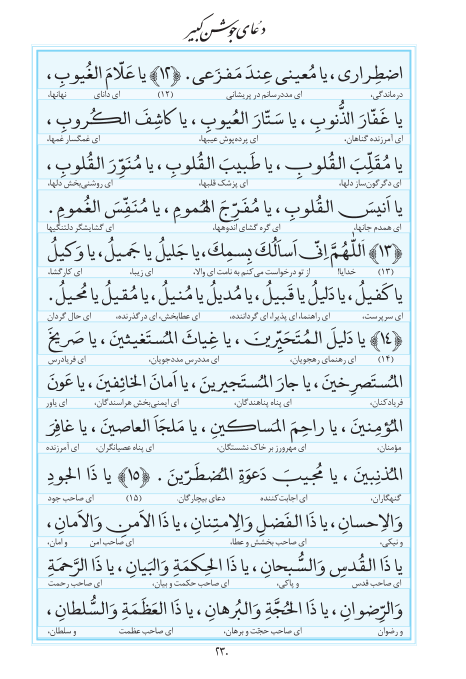 دعای جوشن کبیر
اضطِراری ، یا مُعینی عِندَ مَفزَعی . ﴿۱۲﴾ یا عَلّامَ الغُیوبِ ،
درماندگی، ای مددرسانم در پریشانی (۱۲) ای دانای نهانها،
یا غَفّارَ الذُّنوبِ ، یا سَتّارَ العُیوبِ ، یا کاشِفَ الکُروبِ ،
ای آمرزنده گناهان، ای پرده‌پوش عیبها، ای غمگسار غمها،
یا مُقَلِّبَ القُلوبِ ، یا طَبیبَ القُلوبِ ، یا مُنَوِّرَ القُلوبِ ،
ای دگرگون‌ساز دلها، ای پزشک قلبها، ای روشنی‌بخش دلها،
یا اَنیسَ القُلوبِ ، یا مُفَرِّجَ الهُمومِ ، یا مُنَفِّسَ الغُمومِ .
ای همدم جانها، ای گره گشای اندوهها، ای گشایشگر دلتنگیها
﴿۱۳﴾ اَللّٰهُمَّ اِنّی اَساَلُكَ بِسمِكَ، یا جَلیلُ یا جَمیلُ، یا وَکیلُ
(۱۳) خدایا! از تو درخواست می‌کنم به نامت ای والا، ای زیبا، ای کارگشا،
یا کَفیلُ، یا دَلیلُ یا قَبیلُ، یا مُدیلُ یا مُنیلُ، یا مُقیلُ یا مُحیلُ.
ای سرپرست، ای راهنما، ای پذیرا، ای گرداننده، ای عطابخش، ای درگذرنده، ای حال گردان
﴿۱٤﴾ یا دَلیلَ المُتَحَیِّرینَ ، یا غِیاثَ المُستَغیثینَ ، یا صَریخَ
(۱۴) ای رهنمای رهجویان، ای مددرس مددجویان، ای فریادرس
المُستَصرِخینَ ، یا جارَ المُستَجیرینَ ، یا اَمانَ الخائِفینَ ، یا عَونَ
فریادکنان، ای پناه پناهندگان، ای ایمنی‌بخش هراسندگان، ای یاور
المُؤمِنینَ ، یا راحِمَ المَساکینِ ، یا مَلجَاَ العاصینَ ، یا غافِرَ
مؤمنان، ای مهرورز بر خاک نشستگان، ای پناه عصیانگران، ای آمرزنده
المُذنِبینَ ، یا مُجیبَ دَعوَةِ المُضطَرّینَ . ﴿۱۵﴾ یا ذَا الجودِ
گنهگاران، ای اجابت‌کننده دعای بیچارگان (۱۵) ای صاحب جود
وَالاِحسانِ ، یا ذَا الفَضلِ وَالاِمتِنانِ ، یا ذَا الاَمنِ وَالاَمانِ ،
و نیکی، ای صاحب بخشش و عطا، ای صاحب امن و امان،
یا ذَا القُدسِ وَالسُّبحانِ ، یا ذَا الحِکمَةِ وَالبَیانِ ، یا ذَا الرَّحمَةِ
ای صاحب قدس و پاکی، ای صاحب حکمت و بیان، ای صاحب رحمت
وَالرِّضوانِ ، یا ذَا الحُجَّةِ وَالبُرهانِ ، یا ذَا العَظَمَةِ وَالسُّلطانِ ،
و رضوان ای صاحب حجّت و برهان، ای صاحب عظمت و سلطان،
۲۳۰